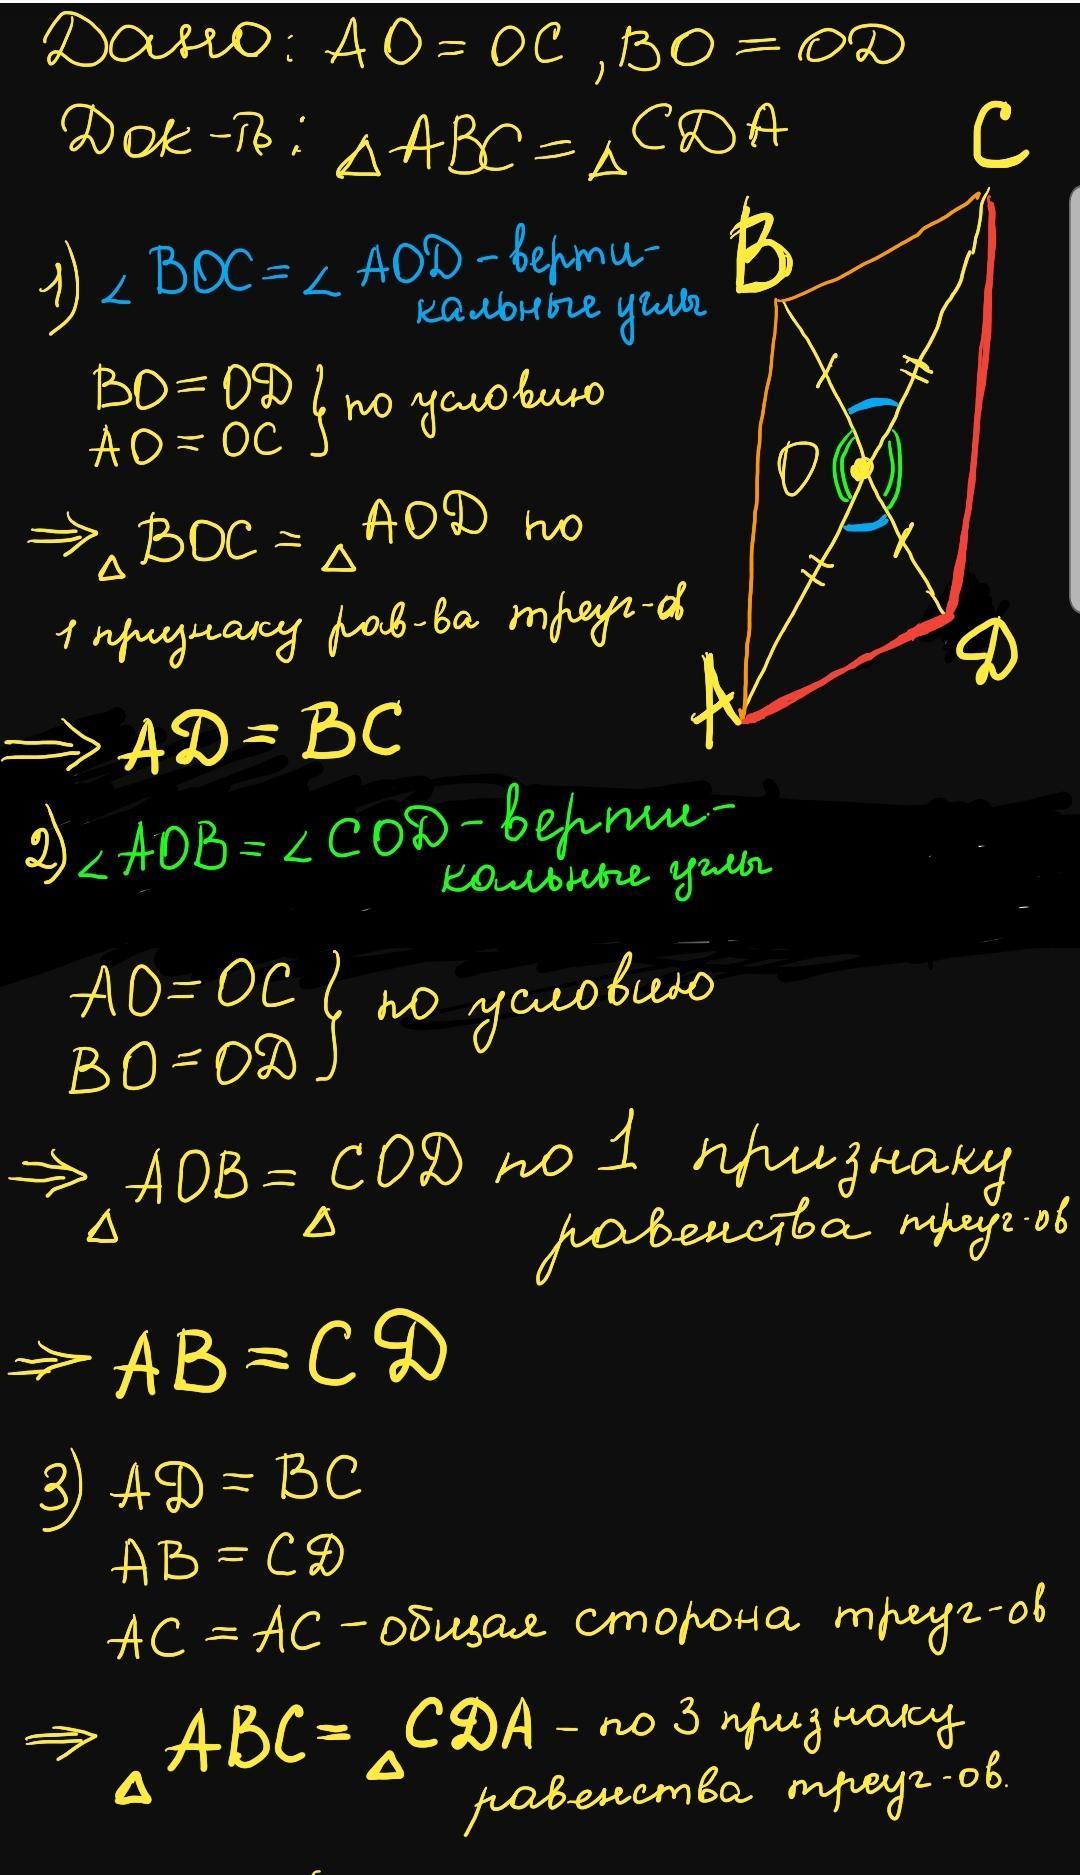 Дано: AO = OC, BO = OD
Док-ть: △ABC = △CDA
C
B
1) ∠BOC = ∠AOD - верти-
кальные углы
BO = OD } по условию
AO = OC
O
⇒ △BOC = △AOD по
1 признаку рав-ва треуг-ов
D
A
⇒ AD = BC
2) ∠AOB = ∠COD - верти-
кальные углы
AO = OC } по условию
BO = OD
⇒ △AOB = △COD по 1 признаку
равенства треуг-ов
⇒ AB = CD
3) AD = BC
AB = CD
AC = AC - общая сторона треуг-ов
⇒ △ABC = △CDA - по 3 признаку
равенства треуг-ов.